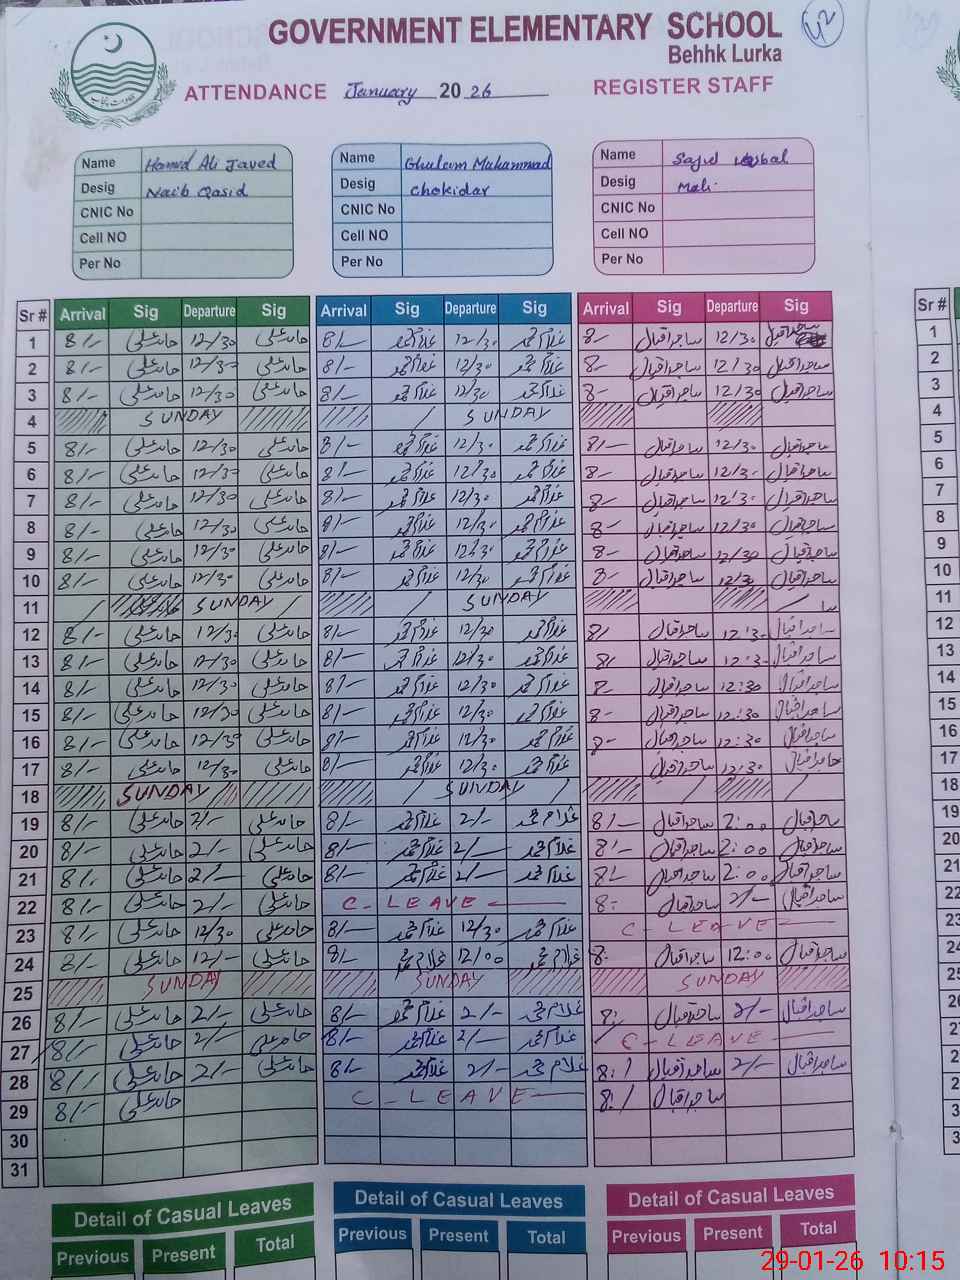 GOVERNMENT ELEMENTARY SCHOOL
42
Behhk Lurka
ATTENDANCE January 20 26 REGISTER STAFF
Name Hamid Ali Javed Name Ghulam Muhammad Name Sajid Iqbal
Desig Naib Qasid Desig Chokidar Desig Mali
CNIC No CNIC No CNIC No
Cell NO Cell NO Cell NO
Per No Per No Per No
Sr # Arrival Sig Departure Sig Arrival Sig Departure Sig Arrival Sig Departure Sig Sr #
1 8/- حامد علی 12/30 حامد علی 8/- غلام محمد 12/30 غلام محمد 8- ساجد اقبال 12/30 ساجد اقبال 1
2 8/- حامد علی 12/30 حامد علی 8/- غلام محمد 12/30 غلام محمد 8- ساجد اقبال 12/30 ساجد اقبال 2
3 8/- حامد علی 12/30 حامد علی 8/- غلام محمد 12/30 غلام محمد 8- ساجد اقبال 12/30 ساجد اقبال 3
4 SUNDAY SUNDAY 4
5 8/- حامد علی 12/30 حامد علی 8/- غلام محمد 12/30 غلام محمد 8/- ساجد اقبال 12/30 ساجد اقبال 5
6 8/- حامد علی 12/30 حامد علی 8/- غلام محمد 12/30 غلام محمد 8- ساجد اقبال 12/30 ساجد اقبال 6
7 8/- حامد علی 12/30 حامد علی 8/- غلام محمد 12/30 غلام محمد 8- ساجد اقبال 12/30 ساجد اقبال 7
8 8/- حامد علی 12/30 حامد علی 8/- غلام محمد 12/30 غلام محمد 8- ساجد اقبال 12/30 ساجد اقبال 8
9 8/- حامد علی 12/30 حامد علی 8/- غلام محمد 12/30 غلام محمد 8- ساجد اقبال 12/30 ساجد اقبال 9
10 8/- حامد علی 12/30 حامد علی 8/- غلام محمد 12/30 غلام محمد 8- ساجد اقبال 12/30 ساجد اقبال 10
11 SUNDAY SUNDAY 11
12 8/- حامد علی 12/30 حامد علی 8/- غلام محمد 12/30 غلام محمد 8/ ساجد اقبال 12:3- ساجد اقبال 12
13 8/- حامد علی 12/30 حامد علی 8/- غلام محمد 12/30 غلام محمد 8/ ساجد اقبال 12:3- ساجد اقبال 13
14 8/- حامد علی 12/30 حامد علی 8/- غلام محمد 12/30 غلام محمد 8- ساجد اقبال 12:30 ساجد اقبال 14
15 8/- حامد علی 12/30 حامد علی 8/- غلام محمد 12/30 غلام محمد 8- ساجد اقبال 12:30 ساجد اقبال 15
16 8/- حامد علی 12/30 حامد علی 8/- غلام محمد 12/30 غلام محمد 8- ساجد اقبال 12:30 ساجد اقبال 16
17 8/- حامد علی 12/30 حامد علی 8/- غلام محمد 12/30 غلام محمد ساجد اقبال 12:30 ساجد اقبال 17
18 SUNDAY SUNDAY 18
19 8/- حامد علی 2/- حامد علی 8/- غلام محمد 2/- غلام محمد 8/- ساجد اقبال 2:00 ساجد اقبال 19
20 8/- حامد علی 2/- حامد علی 8/- غلام محمد 2/- غلام محمد 8/- ساجد اقبال 2:00 ساجد اقبال 20
21 8/- حامد علی 2/- حامد علی 8/- غلام محمد 2/- غلام محمد 8/- ساجد اقبال 2:00 ساجد اقبال 21
22 8/- حامد علی 2/- حامد علی C-LEAVE 8: ساجد اقبال 2/- ساجد اقبال 22
23 8/- حامد علی 12/30 حامد علی 8/- غلام محمد 12/30 غلام محمد C-LEAVE 23
24 8/- حامد علی 12/- حامد علی 8/- غلام محمد 12/00 غلام محمد 8- ساجد اقبال 12:00 ساجد اقبال 24
25 SUNDAY SUNDAY SUNDAY 25
26 8/- حامد علی 2/- حامد علی 8/- غلام محمد 2/- غلام محمد 8: ساجد اقبال 2/- ساجد اقبال
27 8/- حامد علی 2/- حامد علی 8/- غلام محمد 2/- غلام محمد C-LEAVE
28 8/- حامد علی 2/- حامد علی 8/- غلام محمد 2/- غلام محمد 8:/ ساجد اقبال 2/- ساجد اقبال
29 8/- حامد علی C-LEAVE 8:/ ساجد اقبال
30
31
Detail of Casual Leaves Detail of Casual Leaves Detail of Casual Leaves
Previous Present Total Previous Present Total Previous Present Total
29-01-26 10:15